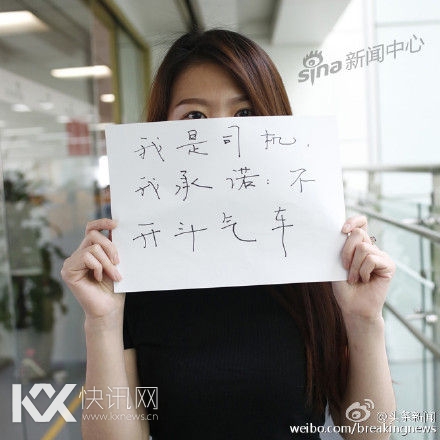 sina 新闻中心
我是司机，
我承诺：不
开斗气车
KX 快讯网
www.kxnews.cn
@头条新闻
weibo.com/breakingnews